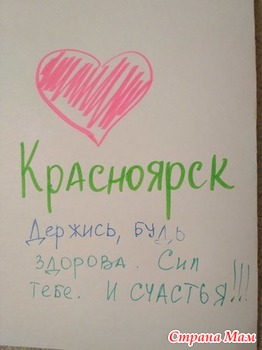 Красноярск
Держись, будь
здорова. Сил
тебе. И СЧАСТЬЯ!!!
Страна Мам